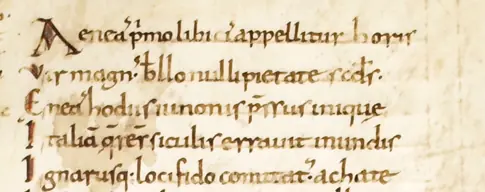 Aeneas primo libici appellitur horis
Vir magn' bello nulli pietate scds.
Eneas hodiis iunonis pressus inique
Italia q̄rens siculis erravit in undis
Ignarusq; loci fido comitat' achate